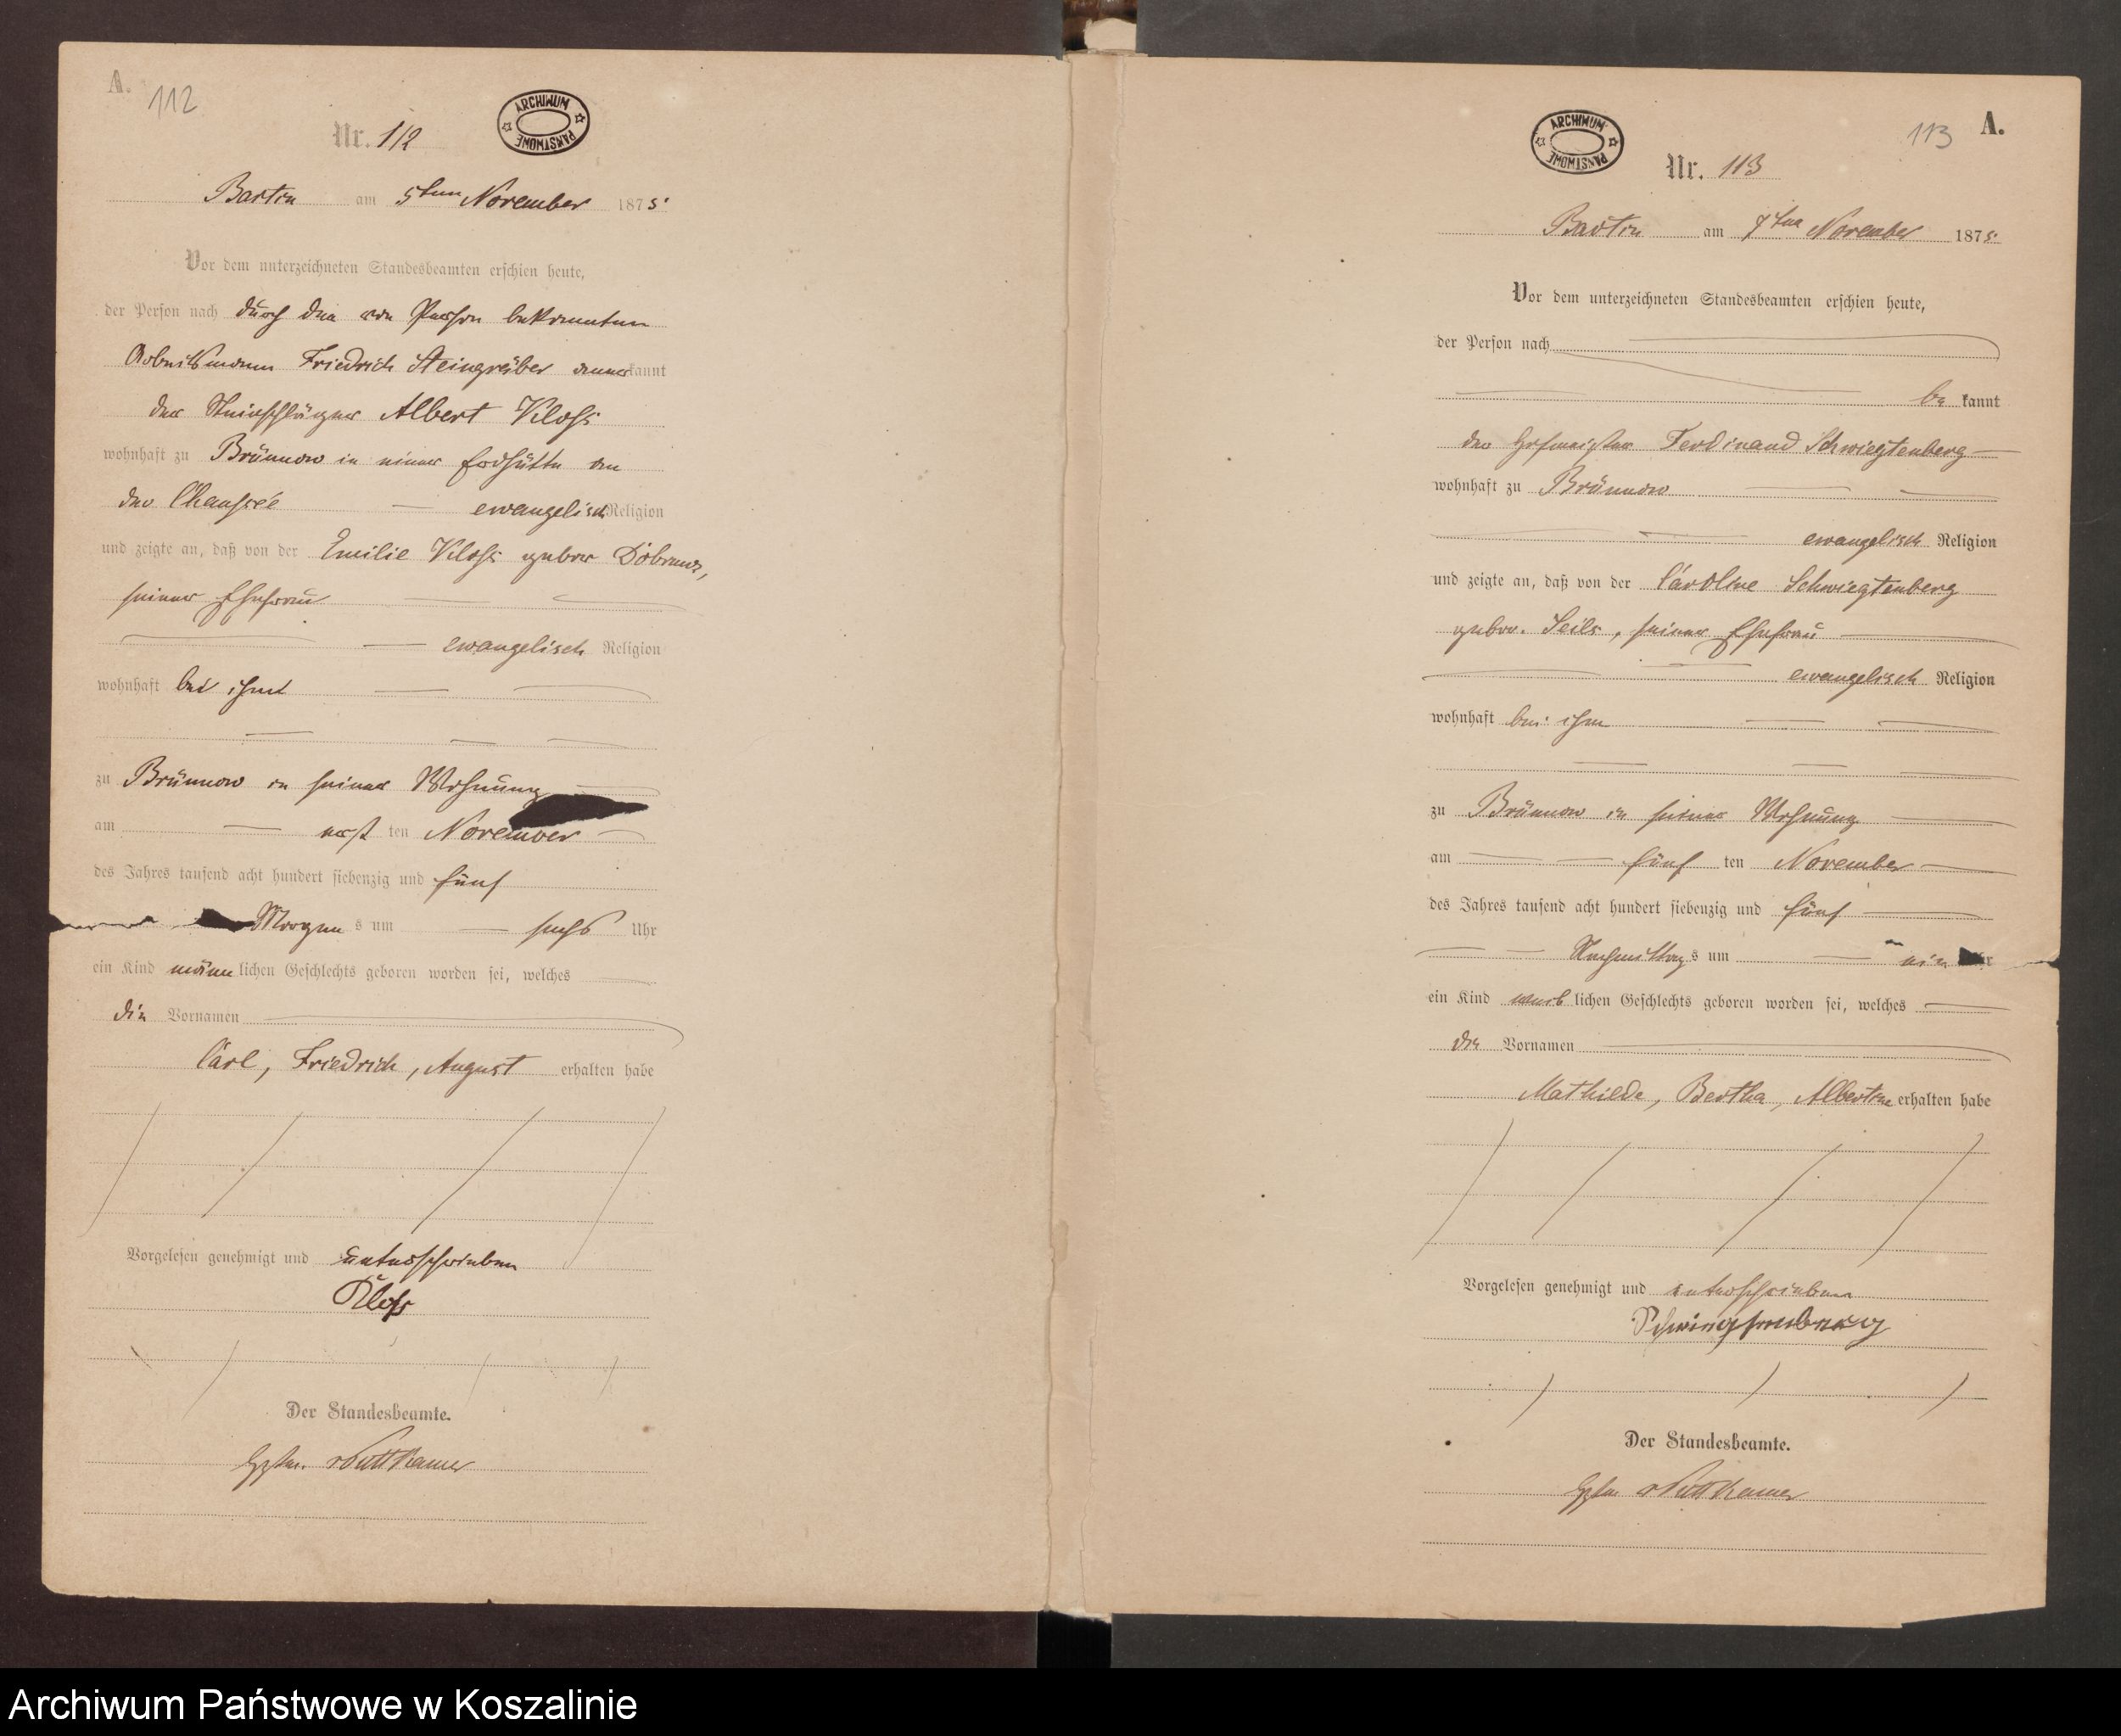 A.
112
Nr. 112
ARCHIWUM PAŃSTWOWE
Bartin am 5ten November 1875.
Vor dem unterzeichneten Standesbeamten erschien heute,
der Person nach durch den von Person bekannten
Arbeitsmann Friedrich Steingräber anerkannt
der Steinschläger Albert Kloß
wohnhaft zu Brünnow in einer Erdhütte an
der Chaussée evangelisch Religion
und zeigte an, daß von der Emilie Kloß geborne,
seiner Ehefrau
evangelisch Religion
wohnhaft bei ihm
zu Brünnow in seiner Wohnung
am erst ten November
des Jahres tausend acht hundert siebenzig und fünf
Morgen s um sechs Uhr
ein Kind männlichen Geschlechts geboren worden sei, welches
die Vornamen
Carl, Friedrich, August erhalten habe
Vorgelesen genehmigt und unterschrieben
Kloß
Der Standesbeamte.
Puttkamer
A.
113
ARCHIWUM PAŃSTWOWE
Nr. 113
Bartin am 7ten November 1875.
Vor dem unterzeichneten Standesbeamten erschien heute,
der Person nach
be kannt
der Hofmeister Ferdinand Schwiegtenberg
wohnhaft zu Brünnow
evangelisch Religion
und zeigte an, daß von der Caroline Schwiegtenberg
gebor. Seils, seiner Ehefrau
evangelisch Religion
wohnhaft bei ihm
zu Brünnow in seiner Wohnung
am fünf ten November
des Jahres tausend acht hundert siebenzig und fünf
Nachmittag s um ein Uhr
ein Kind weiblichen Geschlechts geboren worden sei, welches
die Vornamen
Mathilde, Bertha, Albertine erhalten habe
Vorgelesen genehmigt und unterschrieben
Der Standesbeamte.
Puttkamer
Archiwum Państwowe w Koszalinie